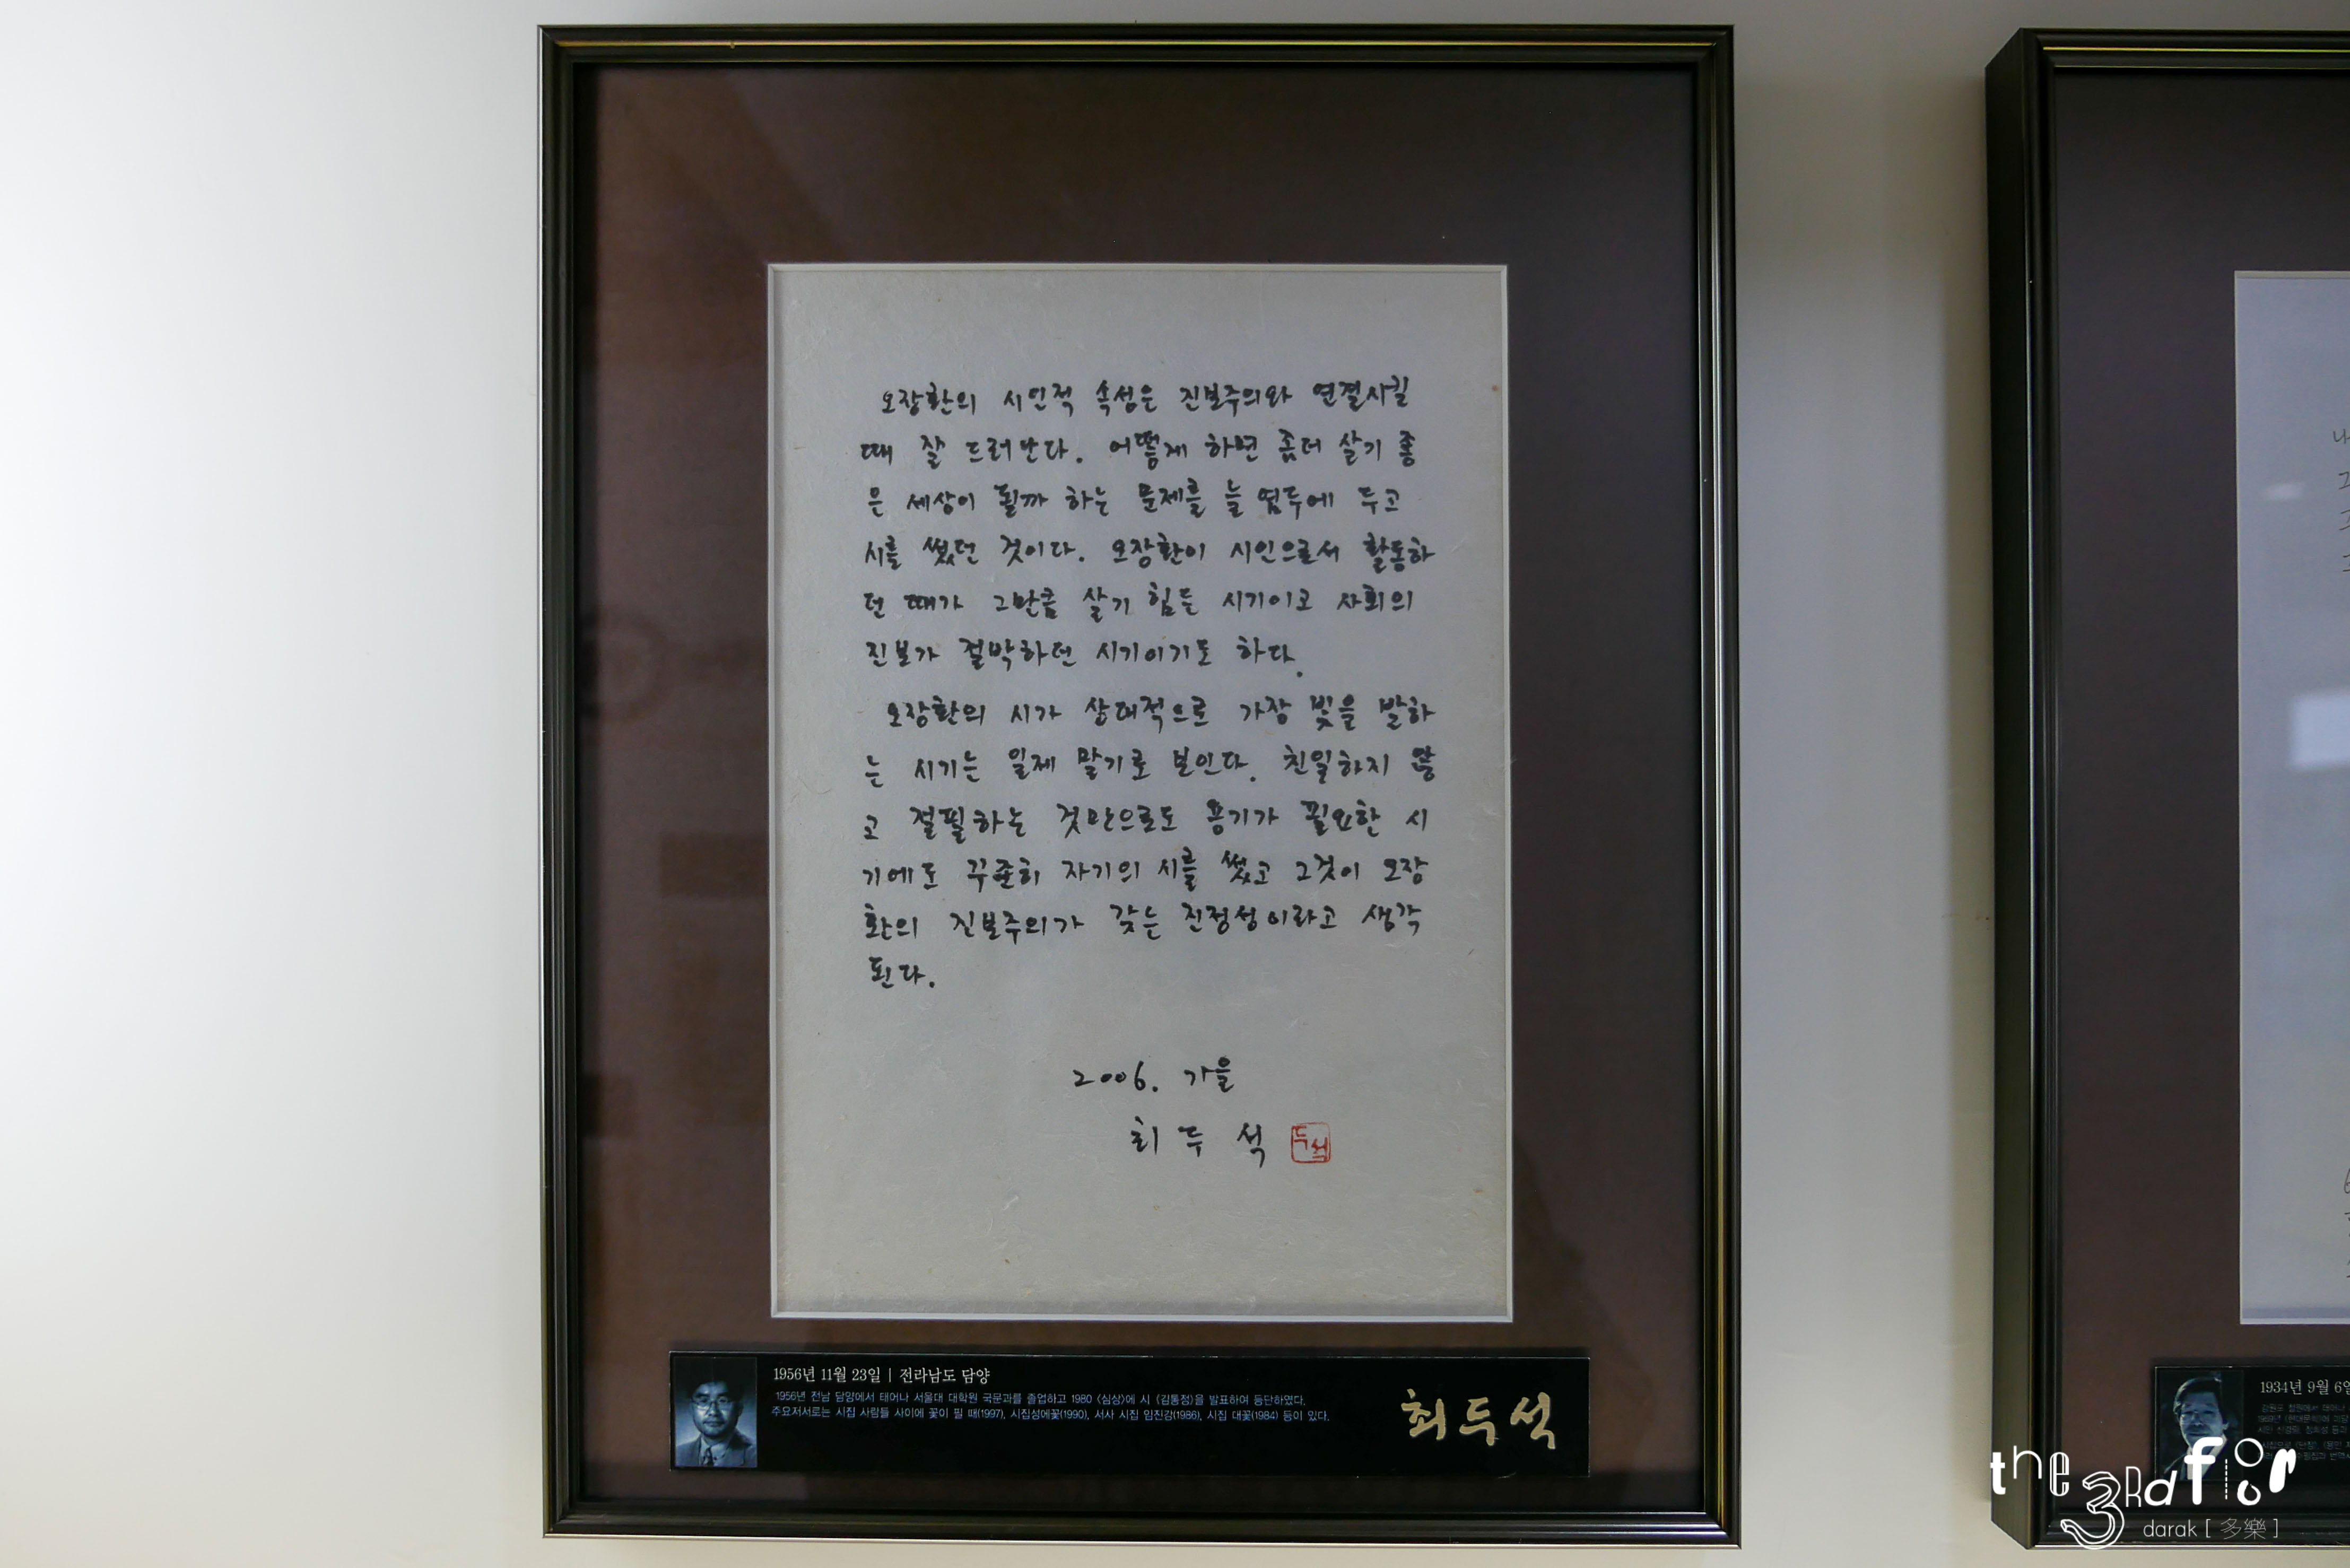 오장환의 시인적 속성은 진보주의와 연결시킬
때 잘 드러난다. 어떻게 하면 좀더 살기 좋
은 세상이 될까 하는 문제를 늘 염두에 두고
시를 썼던 것이다. 오장환이 시인으로서 활동하
던 때가 그만큼 살기 힘든 시기이고 사회의
진보가 절박하던 시기이기도 하다.
오장환의 시가 상대적으로 가장 빛을 발하
는 시기는 일제 말기로 보인다. 친일하지 않
고 절필하는 것만으로도 용기가 필요한 시
기에도 꾸준히 자기의 시를 썼고 그것이 오장
환의 진보주의가 갖는 진정성이라고 생각
된다.
2006. 가을
최두석
두석
1956년 11월 23일 | 전라남도 담양
1956년 전남 담양에서 태어나 서울대 대학원 국문과를 졸업하고 1980 <심상>에 시 <김통정>을 발표하여 등단하였다.
주요저서로는 시집 사람들 사이에 꽃이 필 때(1997), 시집성에꽃(1990), 서사 시집 임진강(1986), 시집 대꽃(1984) 등이 있다.
최두석
1934년 9월 6일
the 3Rd floor
darak [ 多樂 ]